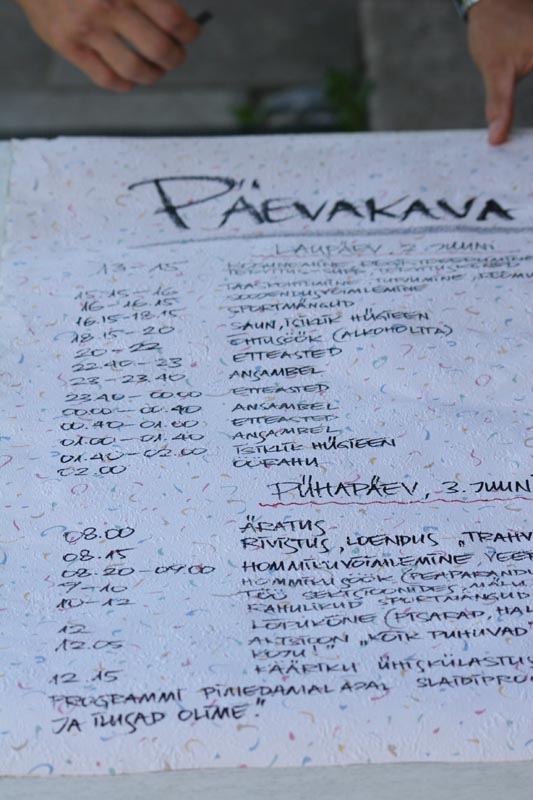 PÄEVAKAVA
LAUPÄEV, 2. JUUNI
13-15
15.15-16
16-16.15 SPORTMÄNGUD
16.15-18.15 SAUN, ISIKLIK HÜGIEEN
18.15-20 ÕHTUSÖÖK (ALKOHOLITA)
20-22 ETTEASTED
22.40-23 ANSAMBEL
23-23.40 ETTEASTED
23.40-00.00 ANSAMBEL
00.00-00.40 ETTEASTED
00.40-01.00 ANSAMBEL
01.00-01.40 ISIKLIK HÜGIEEN
01.40-02.00 ÖÖRAHU
02.00
PÜHAPÄEV, 3. JUUNI
08.00 ÄRATUS
08.15 RIVISTUS, LOENDUS, „TRAHV
08.20-09.00 HOMMIKUVÕIMLEMINE, VEEP
9-10 HOMMIKUSÖÖK (PEAPARANDU
10-12 TÖÖ SEKTSIOONIDES,
RAHULIKUD SPORTMÄNGUD
12 LÕPUKÕNE (PISARAD, HAL
12.05 AKTSIOON „KÕIK PUHUVAD
KOJU!"
12.15 KÄÄRIKU ÜHISKÜLASTUS
PROGRAMMI PIMEDAMAL AJAL SLAIDIPRO
JA ILUSAD OLIME".